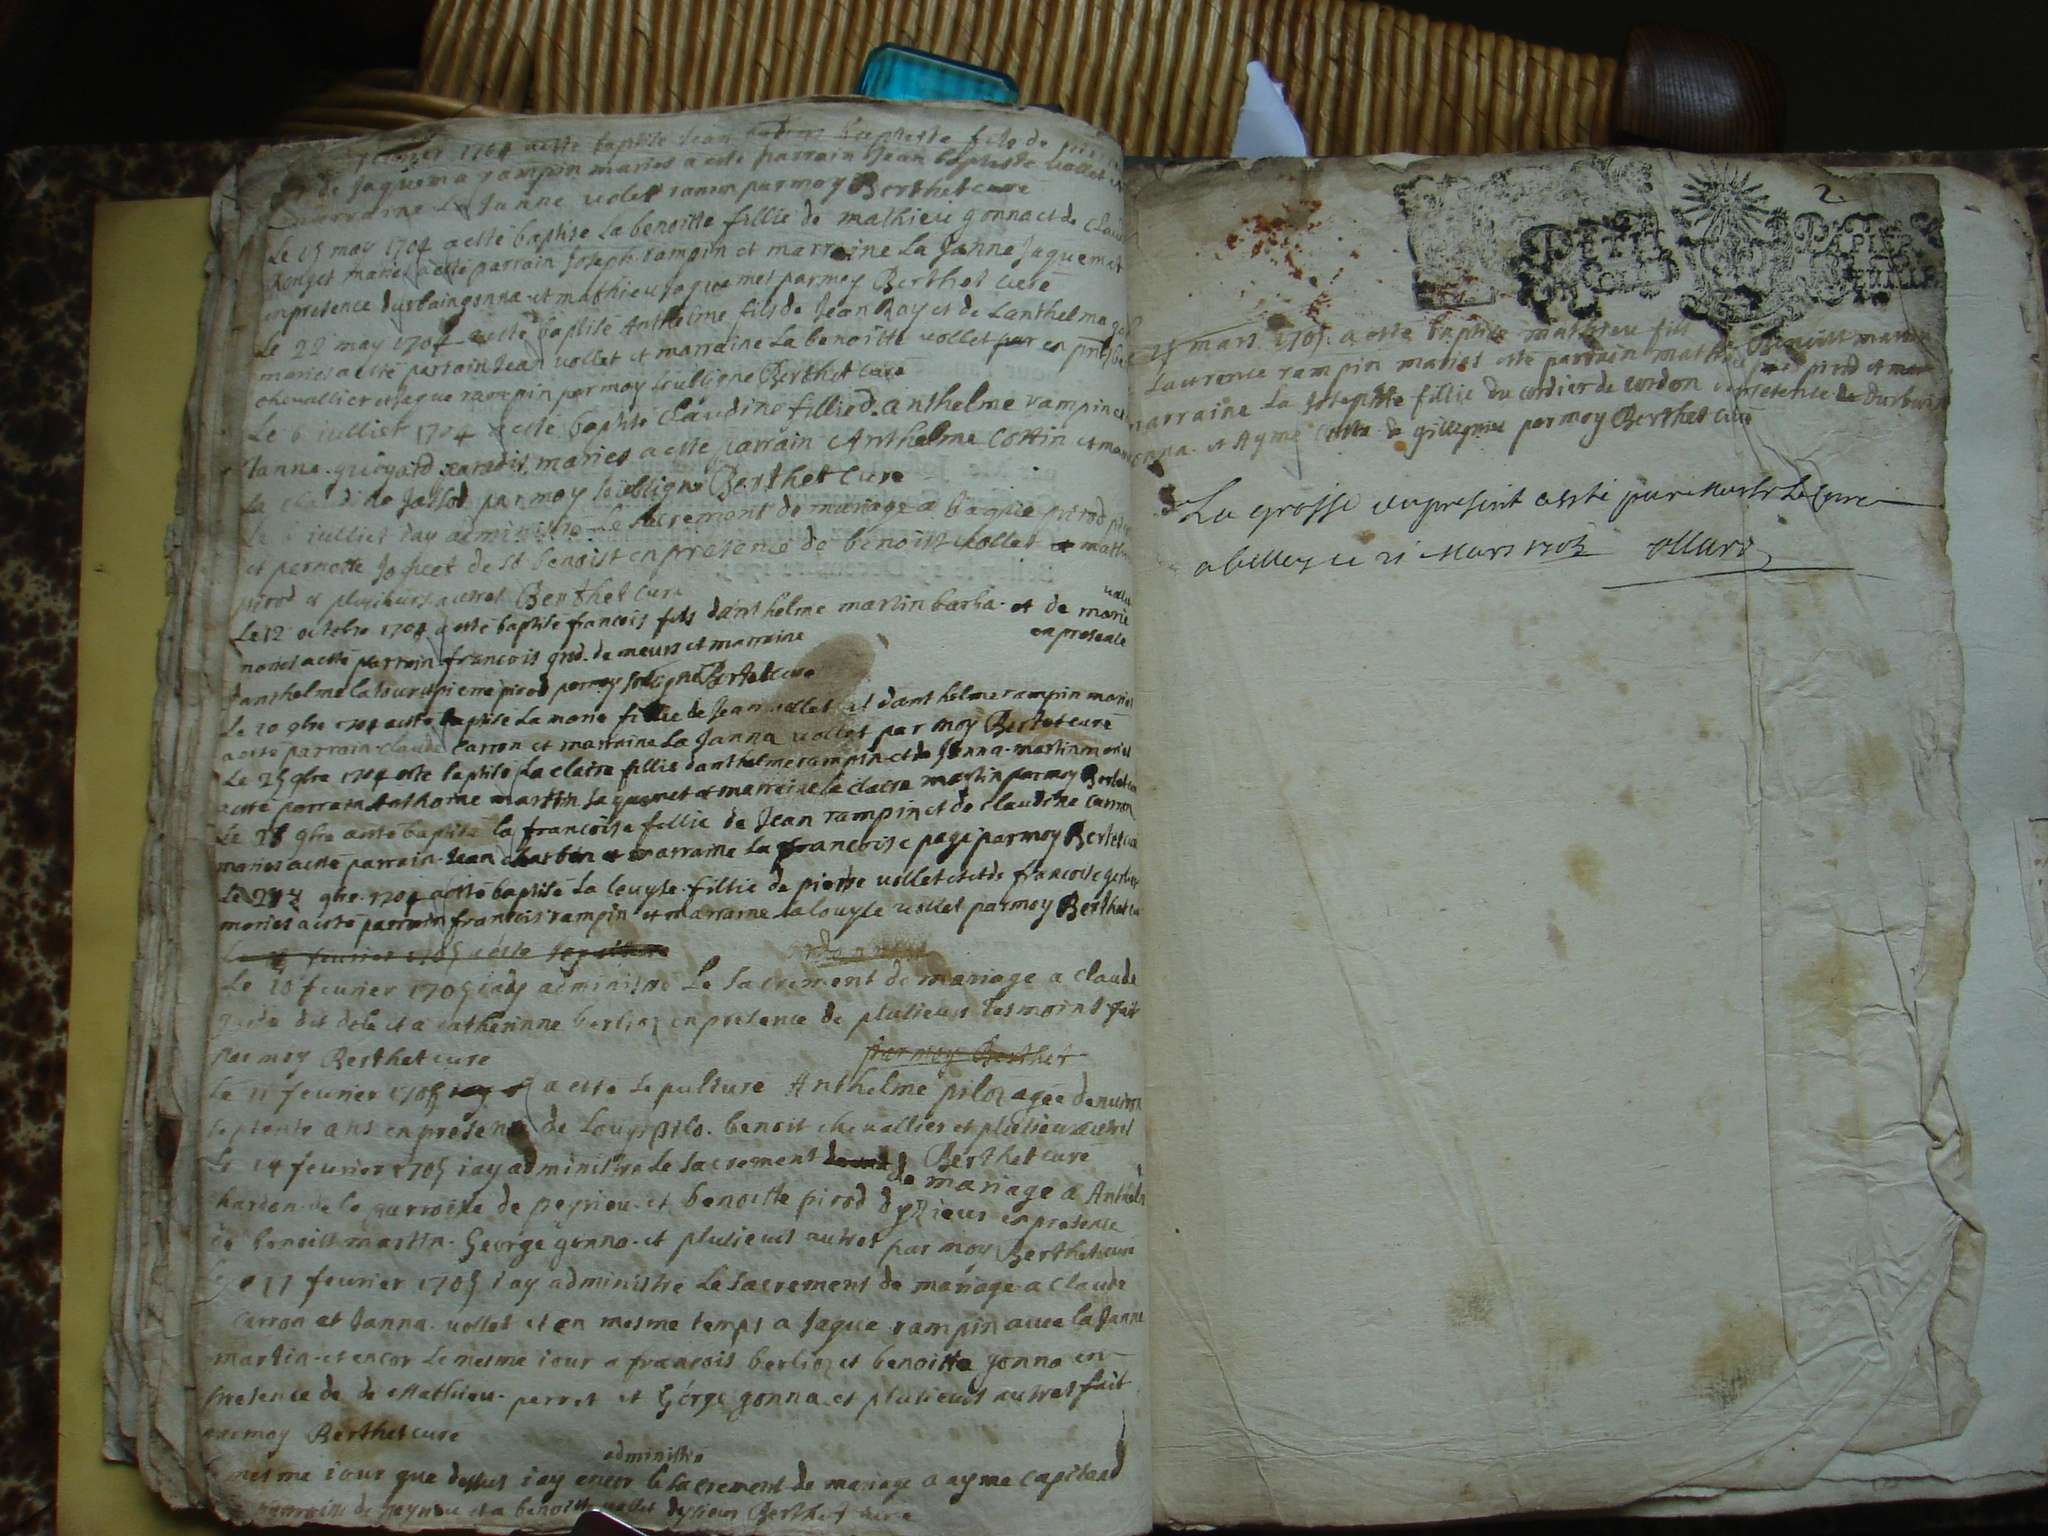 feurier 1704 a esté baptise Jean baptiste fils de
de Jaquema rampin mariés a esté parrain Jean baptiste vollet et
marraine La Janne volet ramp par moy Berthet cure
Le 15 may 1704 a esté baptise La benoitte fillie de mathieu gonna et de Claud
Ronget mariés a esté parrain Joseph rampin et marraine La Janne Jaquemet
en presence durbain gonna et mathieu jaquemet par moy Berthet cure
Le 22 may 1704 a esté baptise Anthelme fils de Jean Ray et de Lanthelma
mariés a esté parrain Jean vollet et marraine La benoitte vollet en presence
chevallier et Jaque rampin par moy soubsigné Berthet cure
Le 6 iulliet 1704 a esté baptise Claudine fillie d anthelme rampin et
Janna guoyard mariés a esté parrain Anthelme Cottin et marr
La Claudine par moy soubsigné Berthet cure
Le iulliet iay administre Le sacrement de mariage a Jaque pirod
et pernette Joquet de St benoist en presence de benoist vollet et math
pirod et plusieurs autres Berthet cure
Le 12 octobre 1704 a esté baptise francois fils danthelme martin barba et de marie
mariés a esté parrain francois de meurs et marraine en presence
danthelme latour et pierre pirod par moy soubsigné Berthet cure
Le 20 9bre 1704 a esté baptise La marie fillie de Jean vollet et danthelme rampin mariés
a esté parrain claude Carron et marraine La Janna vollet par moy Berthet cure
Le 25 9bre 1704 esté baptise La claire fillie danthelme rampin et de Janna martin mariés
a esté parrain Anthoine martin Jaquemet et marraine la claire martin par moy Berthet cure
Le 28 9bre a esté baptise la francoise fillie de Jean rampin et de claudine carron
mariés a esté parrain Jean et marraine La francoise page par moy Berthet cure
Le 9bre 1704 a esté baptise La louyse fillie de pierre vollet et de francoise
mariés a esté parrain francois rampin et marraine la louyse vollet par moy Berthet cure
feurier 1705 a esté
Le 10 feurier 1705 iay administre Le sacrement de mariage a Claude
et a catherinne berlioz en presence de plusieurs tesmoins fait
par moy Berthet cure par moy Berthet
Le 11 feurier 1705 a esté sepulture Anthelme piloz agée denuiron
septente ans en presence de Louys benoit chevallier et plusieurs autres
Berthet cure
Le 14 feurier 1705 iay administre Le sacrement
de mariage a Anthelme
hardon de la parroisse de peyrieu et benoitte pirod dyzieus en presence
de benoist martin George gonna et plusieurs autres par moy Berthet cure
Le 17 feurier 1705 iay administre Le sacrement de mariage a Claude
Carron et Janna vollet et en mesme temps a Jaque rampin auec la Janne
martin et encor Le mesme iour a francois berlioz et benoitte gonna en
presence de de Mathieu perret et Gorge gonna et plusieurs autres fait
par moy Berthet cure
administre
Le mesme iour que dessus iay encor le sacrement de mariage a ayme capitand
parroisse de peyrieu et a benoitte vollet dysieus Berthet cure
2
PETIT PAPIER
mars 1705 a esté baptise mathieu fils benoist martin
Laurence rampin mariés esté parrain mathieu pirod et
marraine La Josephte fillie du cordier de cordon en presence de durbain
gonna et Ayme par moy Berthet cure
La grosse du present a esté
a belley ce 21 Mars 1705